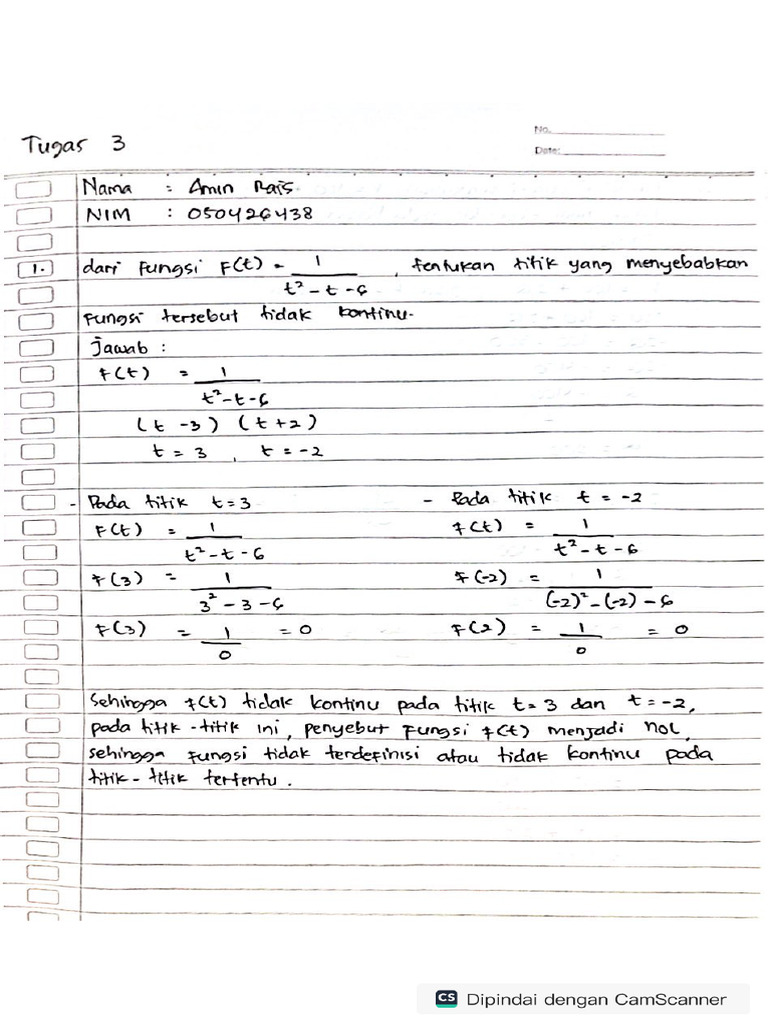 Tugas 3
No.
Date:
Nama : Amin Rais.
NIM : 050426438
1. dari fungsi F(t) = 1 / (t² - t - 6) , tentukan titik yang menyebabkan
fungsi tersebut tidak kontinu.
Jawab :
F(t) = 1 / (t² - t - 6)
(t - 3) (t + 2)
t = 3 , t = -2
- Pada titik t = 3
F(t) = 1 / (t² - t - 6)
F(3) = 1 / (3² - 3 - 6)
F(3) = 1 / 0 = 0
- Pada titik t = -2
F(t) = 1 / (t² - t - 6)
F(-2) = 1 / ((-2)² - (-2) - 6)
F(2) = 1 / 0 = 0
Sehingga f(t) tidak kontinu pada titik t = 3 dan t = -2,
pada titik-titik ini, penyebut fungsi f(t) menjadi nol,
sehingga fungsi tidak terdefinisi atau tidak kontinu pada
titik-titik tertentu.
CS Dipindai dengan CamScanner